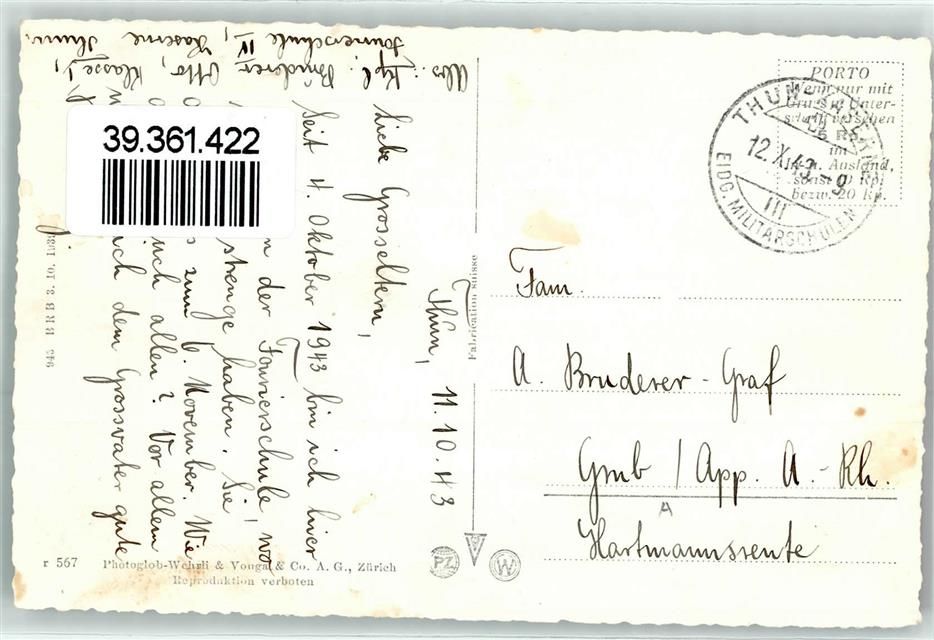 Abs: Kpl. Bruderer Otto, Klasse 1,
Fourierschule IV, Kaserne Thun.
39.361.422
Thun, 11.10.43
Liebe Grosseltern,
Seit 4. Oktober 1943 bin ich hier
n der Fourierschule, wo
strenge haben. Sie
zum 6. November. Wie
uch allen? Vor allem
ich dem Grossvater gute
r 567
Photoglob-Wehrli & Vouga & Co. A. G., Zürich
Reproduktion verboten
Fabrication suisse
PZ
W
PORTO
Wenn nur mit
Gruss u. Unter-
schrift versehen
5 Rp.
im
Ausland,
sonst 10 Rp.
bezw. 20 Kp.
THUN
12.X.43.-9
III
EIDG. MILITÄRSCHULEN
Fam.
A. Bruderer-Graf
Grub / App. A.-Rh.
A
Hartmannsrente